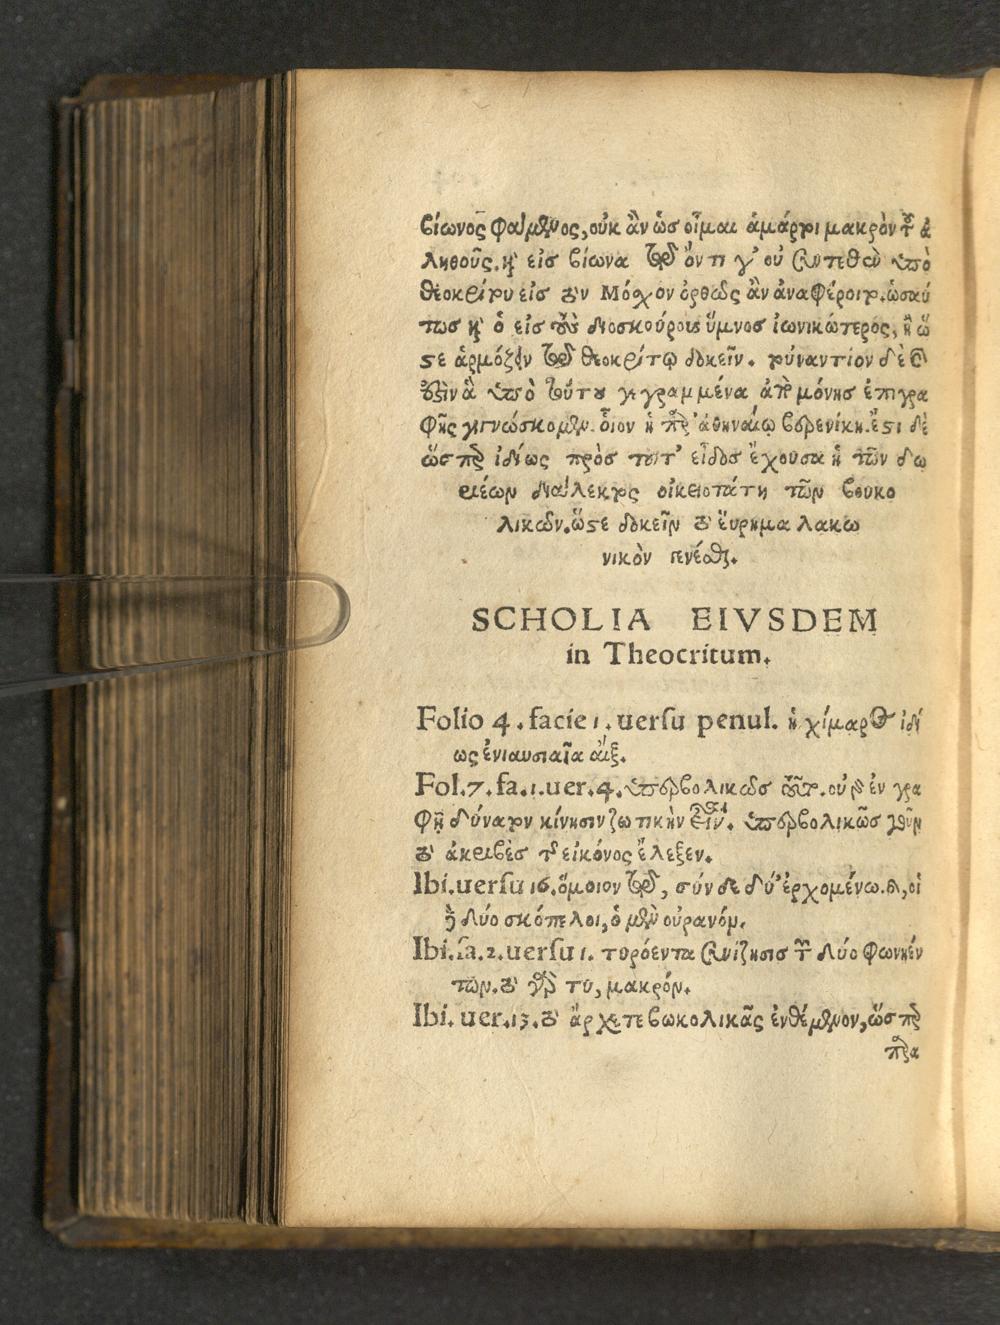 βίωνος φαίμενος, οὐκ ἂν ὡς οἶμαι ἁμάρτοι μακρὰν τῆς ἀ
ληθοῦς. καὶ εἰς βίωνα τὸ ὄν τι γ' οὐ συντεθὲν ὑπὸ
θεοκρίτου εἰς τὸν Μόσχον ὀρθῶς ἂν ἀναφέροιτο. ὡσαύ
τως καὶ ὁ εἰς τοὺς διοσκούρους ὕμνος ἰωνικώτερος, ἢ ὥ
στε ἁρμόζειν τῷ θεοκρίτῳ δοκεῖν. τοὐναντίον δὲ
ὑπὸ τούτου γεγραμμένα ἀπὸ μόνης ἐπιγρα
φῆς γιγνώσκομεν. οἷον ἡ παρ' ἀθηναίῳ βερενίκη. ἔστι δὲ
ὥσπερ ἰδίως πρὸς τοῦτ' εἶδος ἔχουσα ἡ τῶν δω
ριέων διάλεκτος οἰκειοτάτη τῶν βουκο
λικῶν. ὥστε δοκεῖν τὸ εὕρημα λακω
νικὸν γενέσθαι.
SCHOLIA EIVSDEM
in Theocritum.
Folio 4. facie 1. uersu penul. ἡ χίμαρος ἰδί
ως ἐνιαυσιαῖα αἴξ.
Fol. 7. fa. 1. uer. 4. ὑπερβολικῶς τοῦτο. οὐ γὰρ ἐν γρα
φῇ δύνατον κίνησιν ζωτικὴν εἶναι. ὑπερβολικῶς γοῦν
τὸ ἀκριβὲς τῆς εἰκόνος ἔλεξεν.
Ibi. uersu 16. ὅμοιον τῷ, σύν δε δύ' ἐρχομένω. καὶ, οἱ
δὲ δύο σκόπελοι, ὁ μὲν οὐρανόν.
Ibi. fa. 2. uersu 1. τυρόεντα συνίζησις τῶν δύο φωνηέν
των. τὸ γὰρ τυ, μακρόν.
Ibi. uer. 13. τὸ ἄρχετε βωκολικᾶς ἐνθέμενον, ὥσπερ